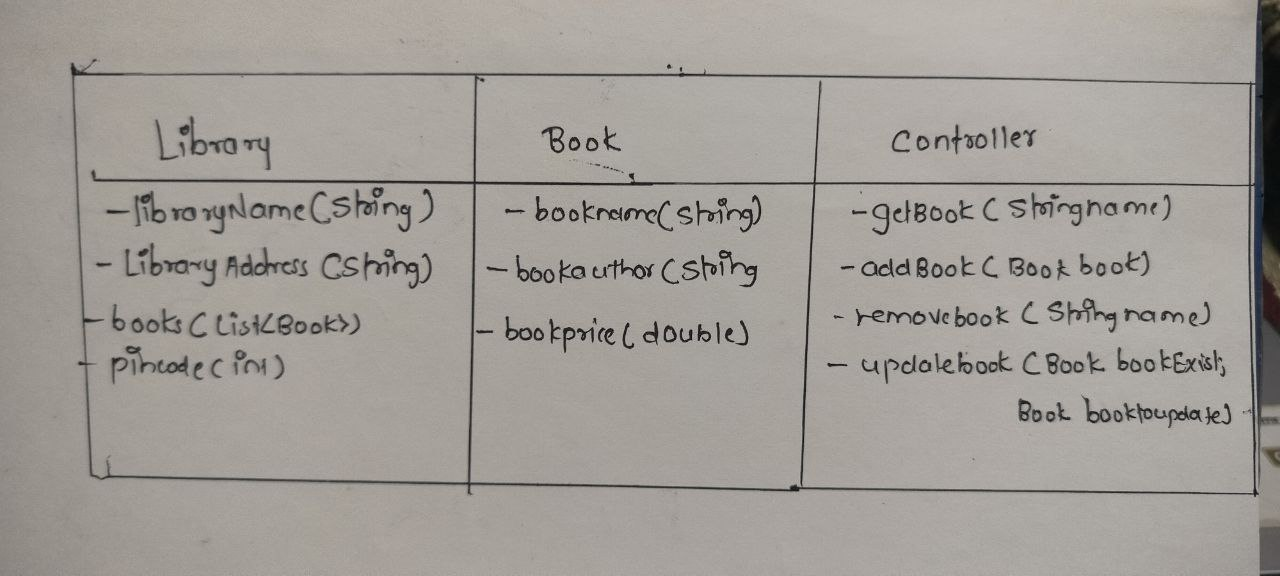 Library
- libraryName (String)
- Library Address (String)
- books (List<Book>)
- pincode (int)
Book
- bookname (String)
- bookauthor (String
- bookprice (double)
Controller
- getBook (String name)
- addBook (Book book)
- removebook (String name)
- updatebook (Book bookExist,
Book booktoupdate)